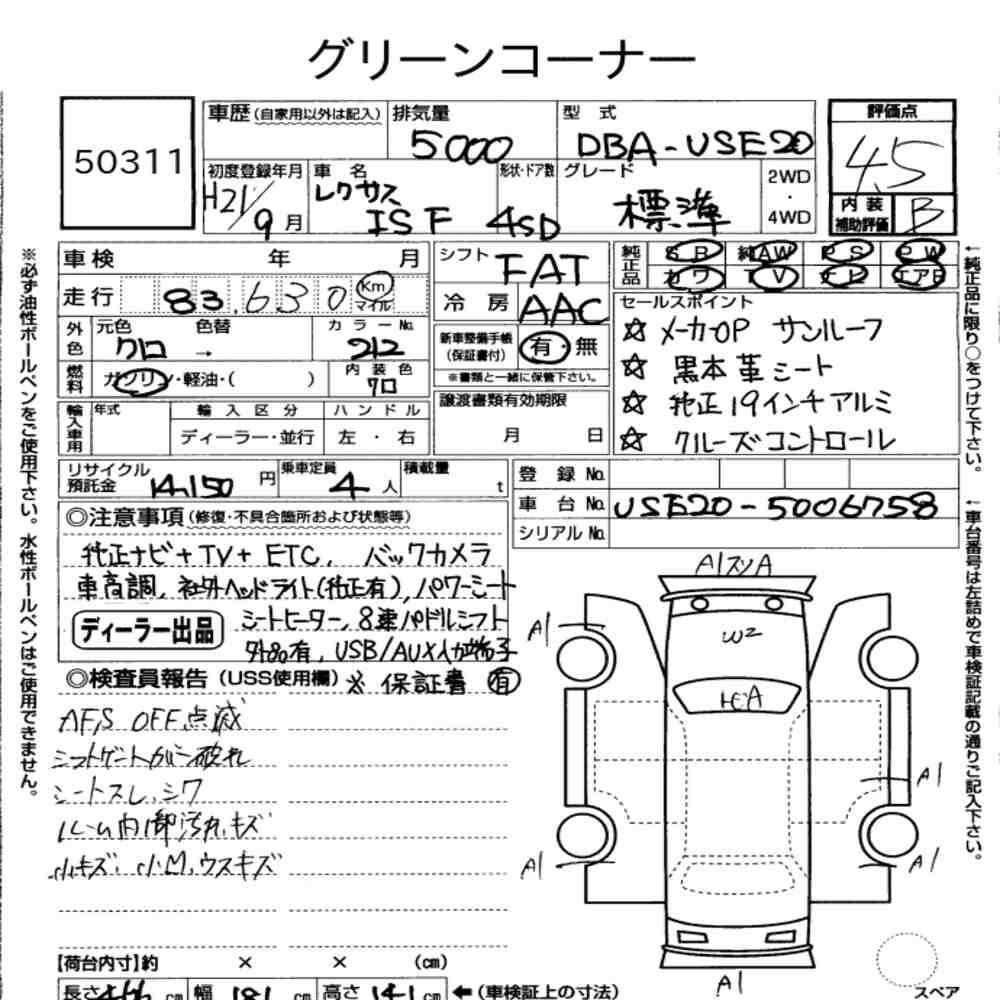 グリーンコーナー
50311
車歴(自家用以外は記入)
排気量
5000
型 式
DBA-USE20
評価点
4.5
初度登録年月
H21/9月
車 名
レクサス
IS F
形状・ドア数
4SD
グレード
標準
2WD
・
4WD
内 装
補助評価
B
車検 年 月
シフト
FAT
純正品
SR 純AW PS PW
カワ TV ナビ エアB
走行 83,630 Km
マイル
冷 房
AAC
セールスポイント
☆ メーカOP サンルーフ
☆ 黒本革シート
☆ 純正19インチアルミ
☆ クルーズコントロール
外色
元色 色替 カラーNo.
クロ → 212
新車整備手帳
(保証書付)
有・無
※書類と一緒に保管下さい。
燃料
ガソリン・軽油・( )
内 装 色
クロ
輸入車用
年式
輸 入 区 分
ハ ン ド ル
ディーラー・並行
左 ・ 右
譲渡書類有効期限
月 日
リサイクル
預託金
14,150円
乗車定員
4人
積載量
t
登 録 No.
車 台 No. USE20-5006758
シリアル No.
◎注意事項(修復・不具合箇所および状態等)
純正ナビ+TV+ETC, バックカメラ
車高調, 社外ヘッドライト(純正有), パワーシート
ディーラー出品
シートヒーター, 8速パドルシフト
外品有, USB/AUX入力端子
◎検査員報告(USS使用欄)
※ 保証書 有
AFS OFF点滅
シフトゲートカバー破れ
シートスレ,シワ
ルーム内1部汚れ,キズ
小キズ,小凹,ウスキズ
A1スリA
W2
トビA
A1
A1
A1
A1
A1
【荷台内寸】約 × × (cm)
長さ 466 cm
幅 181 cm
高さ 141 cm
←(車検証上の寸法)
スペア
※必ず油性ボールペンをご使用下さい。水性ボールペンはご使用できません。
←純正品に限り○をつけて下さい。
←車台番号は左詰めで車検証記載の通りご記入下さい。